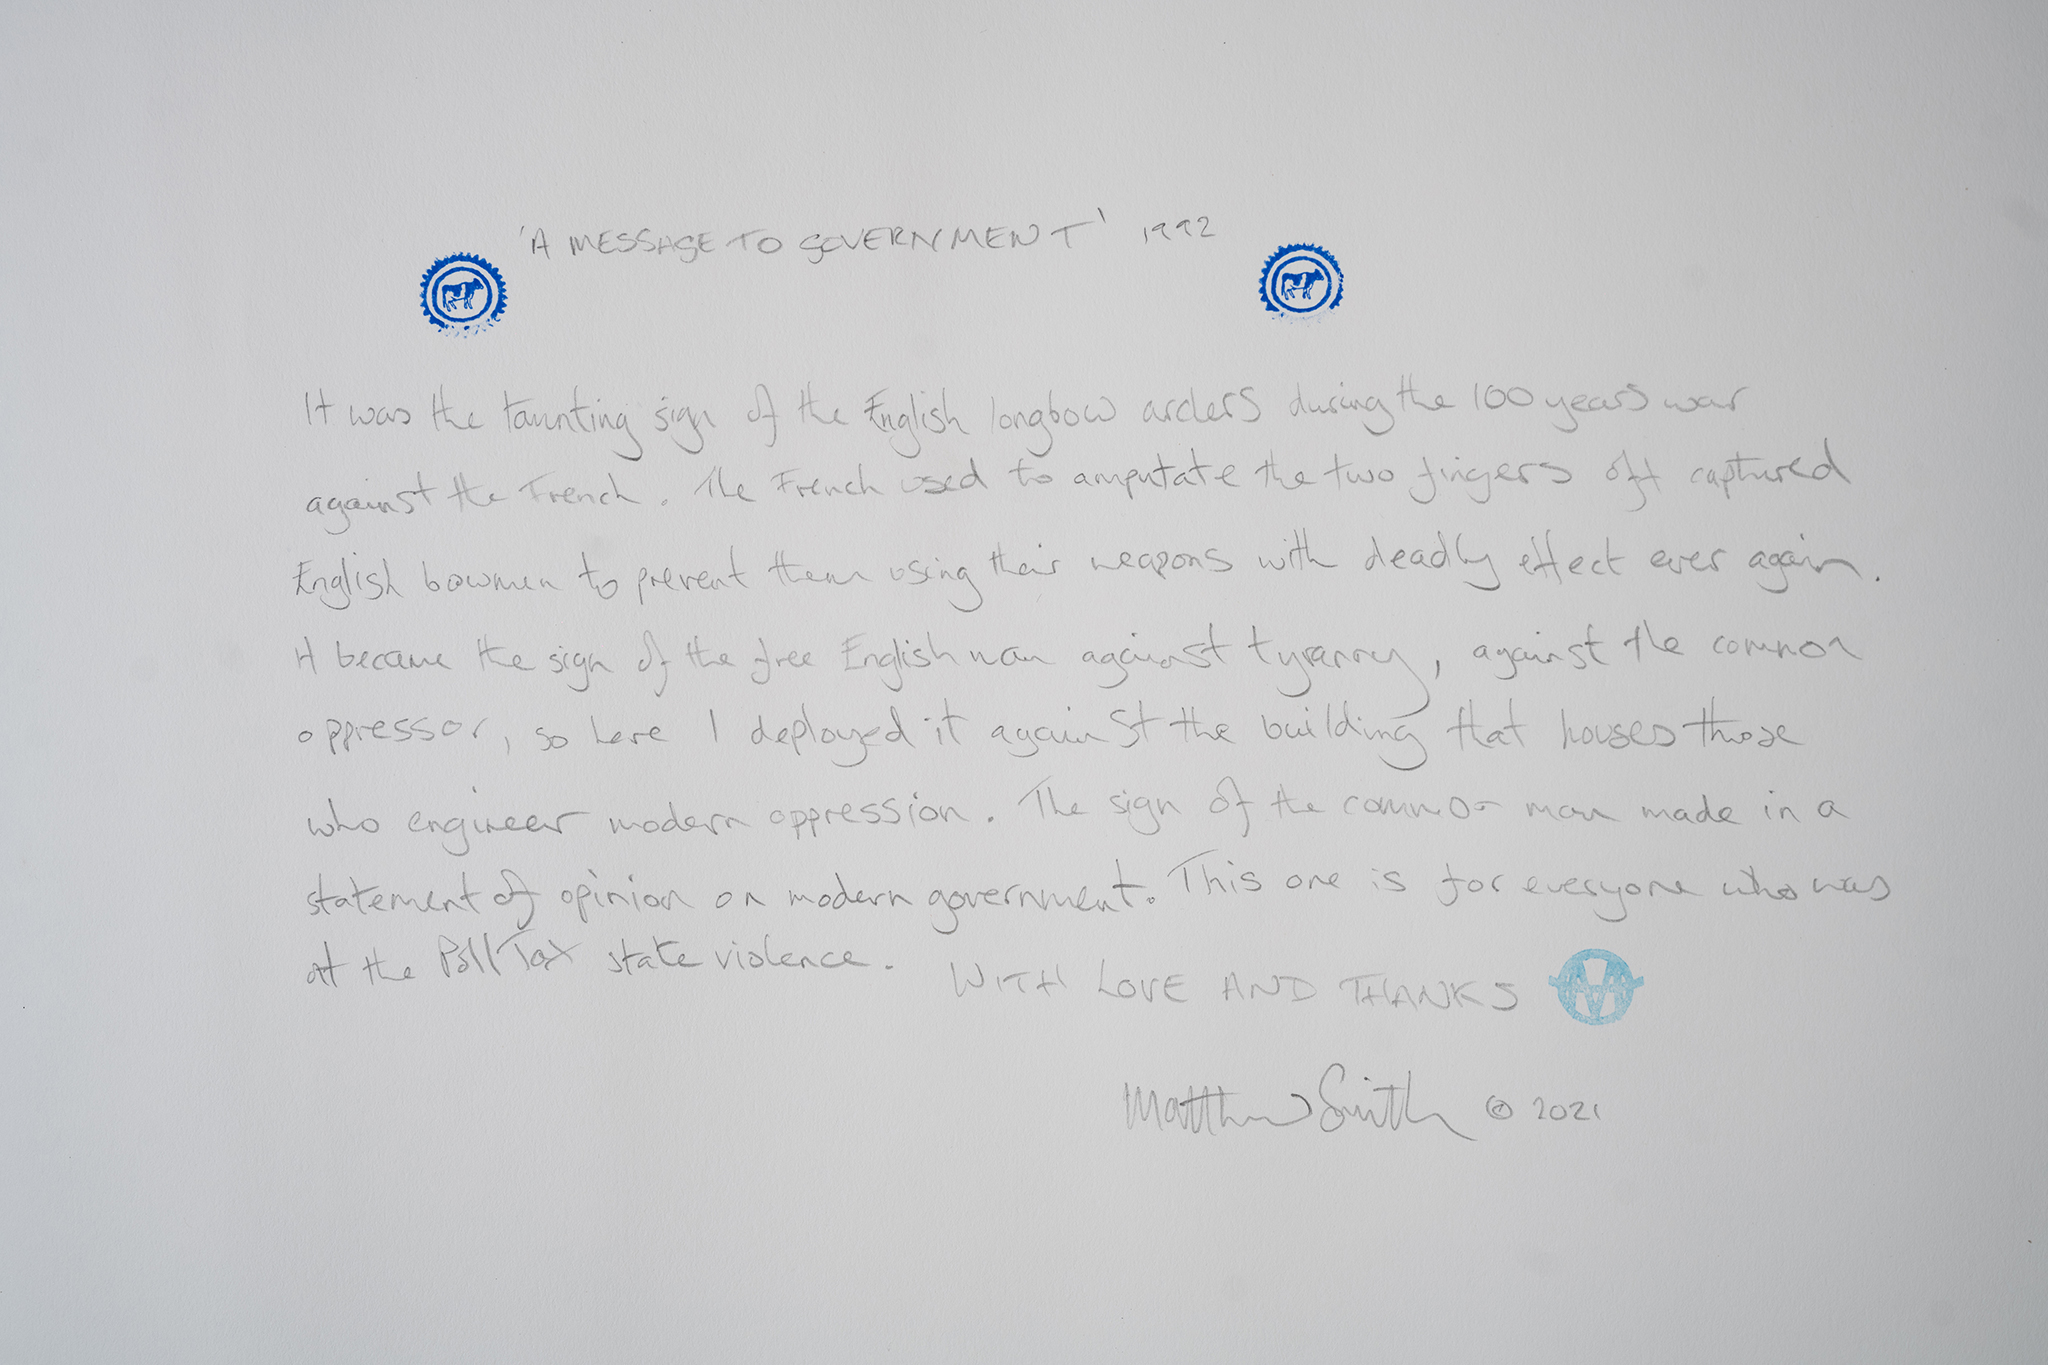 'A MESSAGE TO GOVERNMENT' 1992
It was the taunting sign of the English longbow archers during the 100 years war
against the French. The French used to amputate the two fingers off captured
English bowmen to prevent them using their weapons with deadly effect ever again.
It became the sign of the free Englishman against tyranny, against the common
oppressor, so here I deployed it against the building that houses those
who engineer modern oppression. The sign of the common man made in a
statement of opinion on modern government. This one is for everyone who was
at the Poll Tax state violence.
WITH LOVE AND THANKS
Matthew Smith © 2021